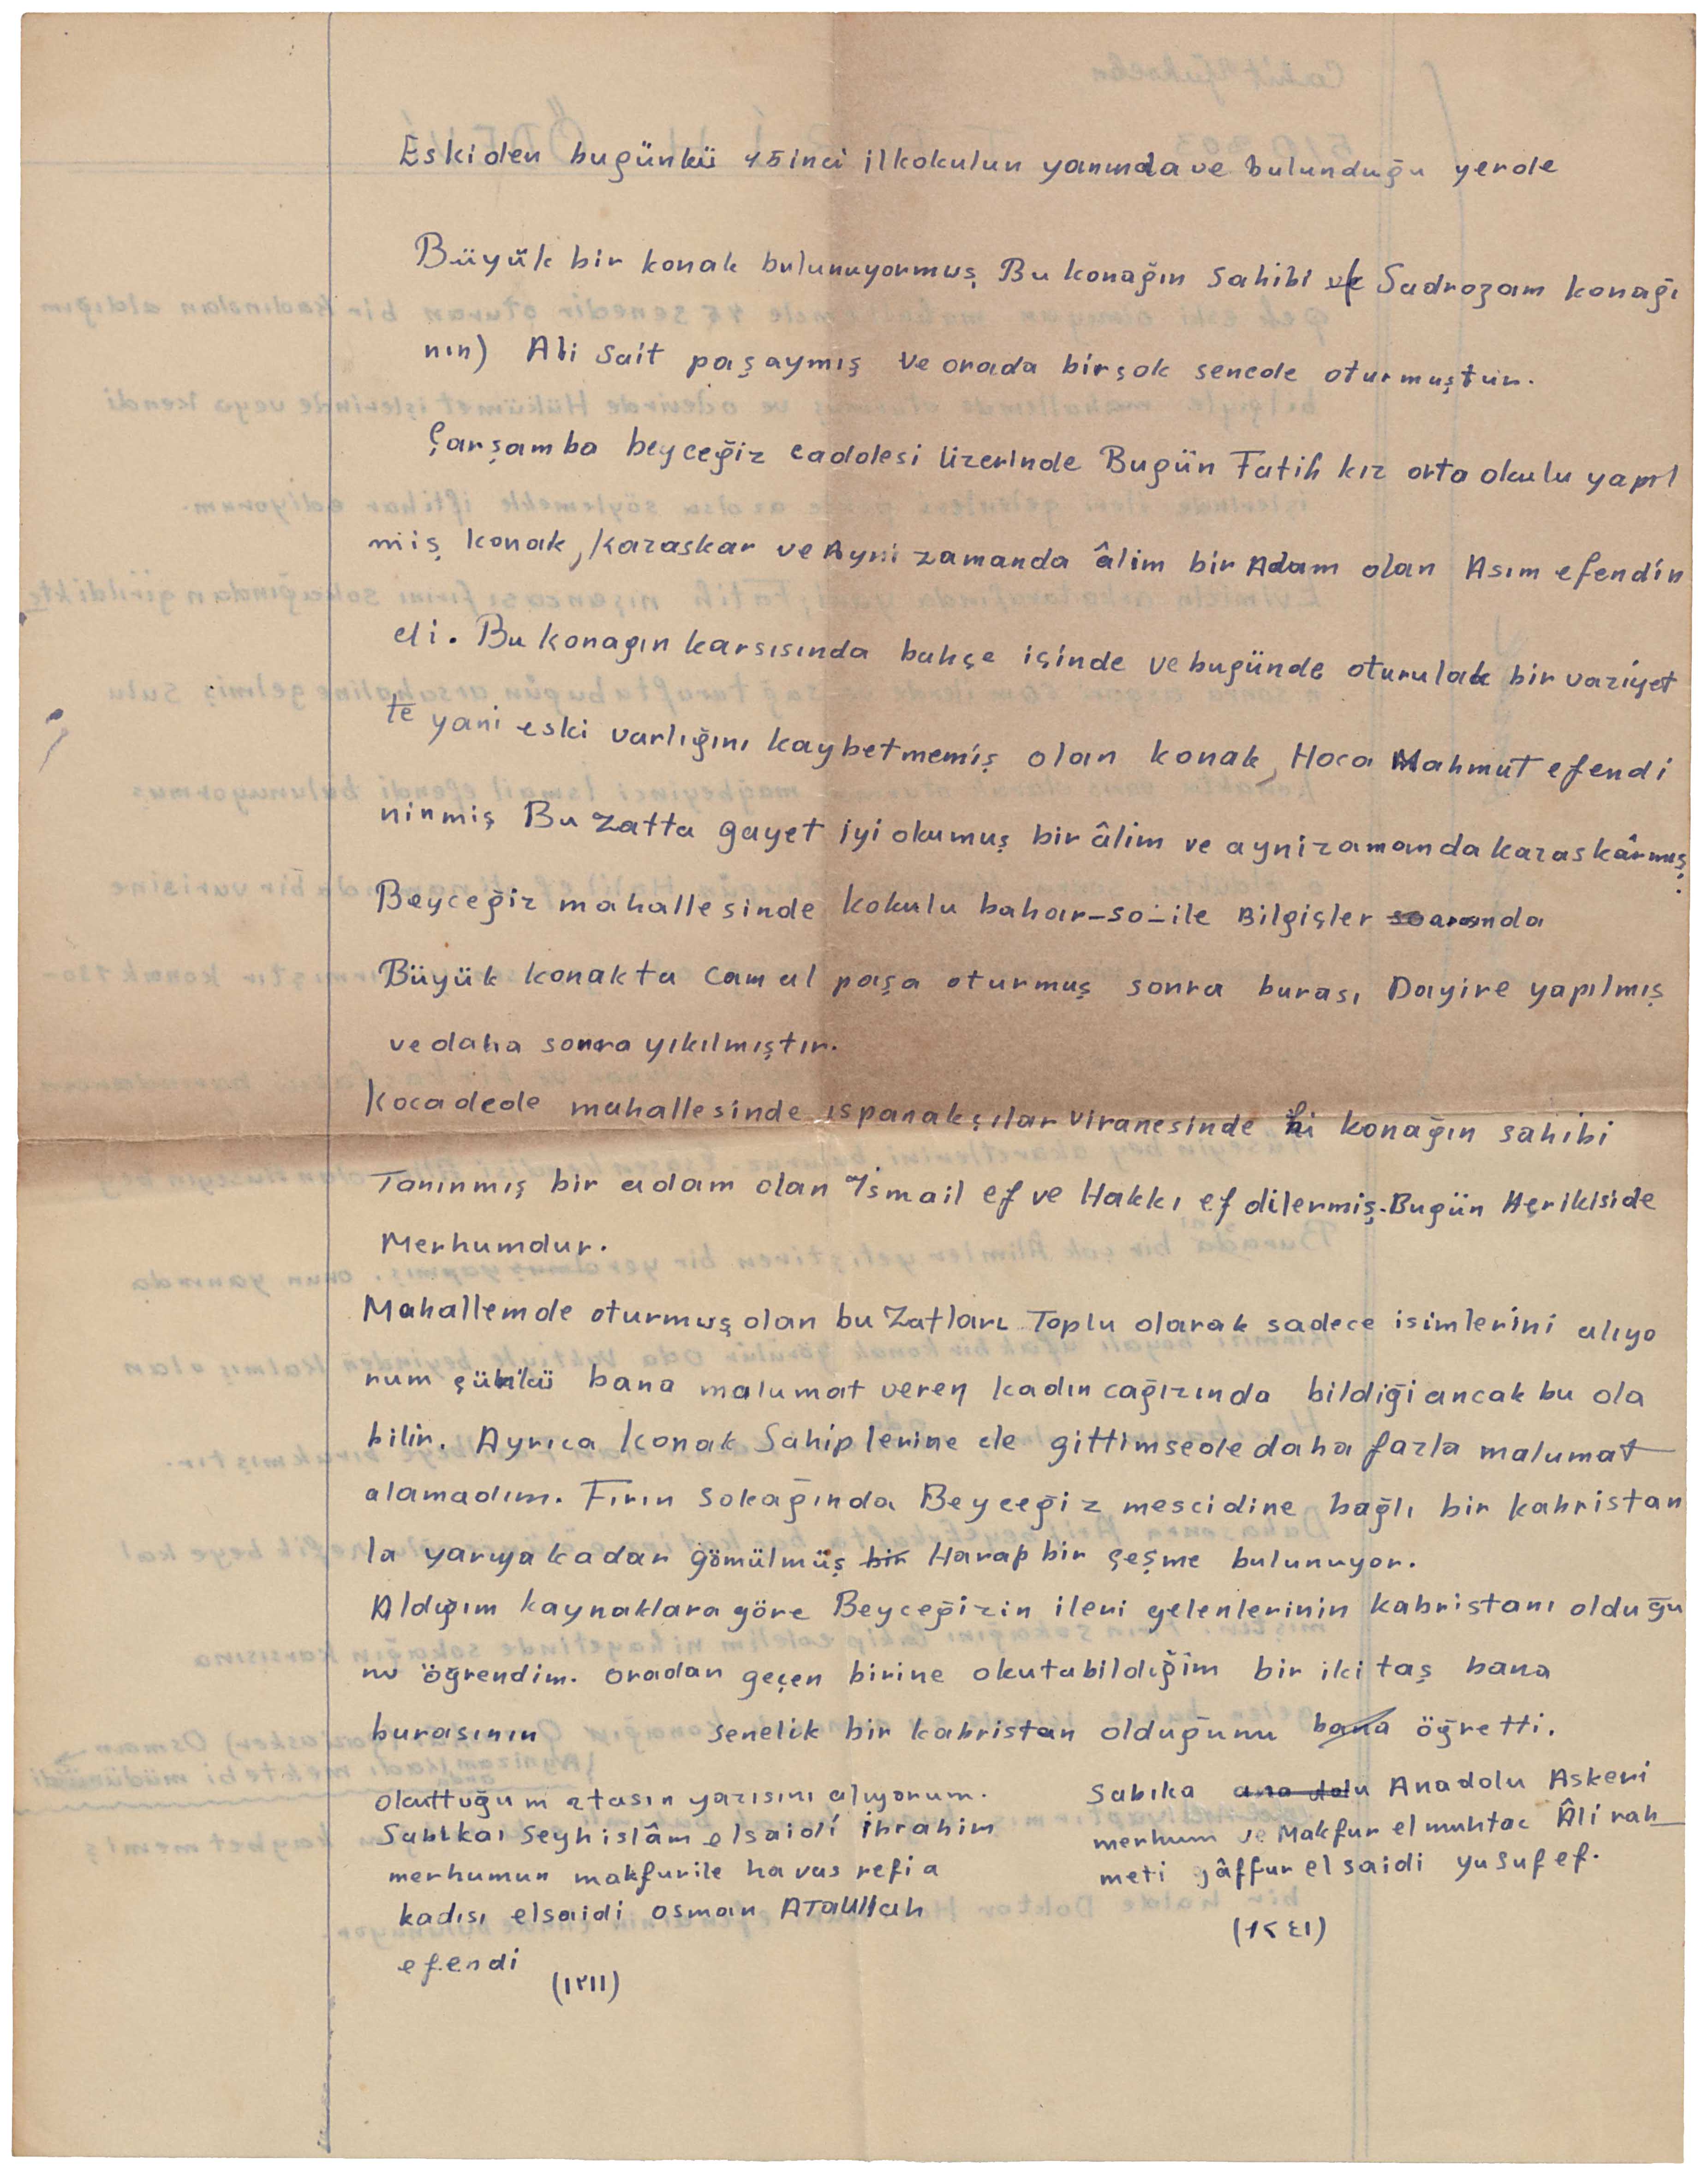 Eskiden bugünkü 45inci ilkokulun yanında ve bulunduğu yerde
Büyük bir konak bulunuyormuş Bu konağın sahibi Sadrozam konağı
nın) Ali Sait paşaymış ve orada birşok senede oturmuştur.
Çarşamba beyceğiz caddesi üzerinde Bugün Fatih kız orta okulu yapıl
miş konak, kazaskar ve Ayni zamanda âlim bir Adam olan Asım efendin
di. Bu konagın karsısında bahçe içinde ve bugünde oturulak bir vaziyet
te yani eski varlığını kaybetmemiş olan konak, Hoca Mahmut efendi
ninmiş Bu zatta gayet iyi okumuş bir âlim ve aynizamanda kazaskârmış.
Beyceğiz mahallesinde kokulu bahar-so-ile Bilgişler so arasında
Büyük konakta Camal paşa oturmuş sonra burası Dayire yapılmış
ve daha sonra yıkılmıştır.
Kocadede mahallesinde ıspanakçılar viranesinde ki konağın sahibi
Tanınmış bir adam olan İsmail ef ve Hakkı ef dilermiş. Bugün Herikiside
Merhumdur.
Mahallemde oturmuş olan bu zatları Toplu olarak sadece isimlerini alıyo
rum çünkü bana malumat veren kadın cağızında bildiği ancak bu ola
bilir. Ayrıca Konak Sahiplerine de gittimsede daha fazla malumat
alamadım. Fırın sokağında Beyceğiz mescidine bağlı bir kabristan
la yarıya kadar gömülmüş bir Harap bir çeşme bulunuyor.
Aldığım kaynaklara göre Beyceğizin ileri gelenlerinin kabristanı olduğu
nu öğrendim. oradan geçen birine okutabildiğim bir iki taş bana
burasının senelik bir kabristan olduğunu bana öğretti.
okuttuğum ztasın yazısını alıyorum.
Sabıkaı Seyhislâm elsaidi İbrahim
merhumun makfurile havas refia
kadısı elsaidi osman ATaullah
efendi
(١٢١١)
Sabıka ana dolu Anadolu Askeri
merhum ve Makfur el muhtac Âli rah
meti gâffur el saidi yusuf ef.
(١٢٤١)